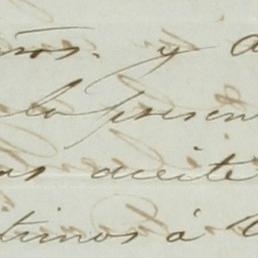 ños. y a
la presen
as aceite
timos á